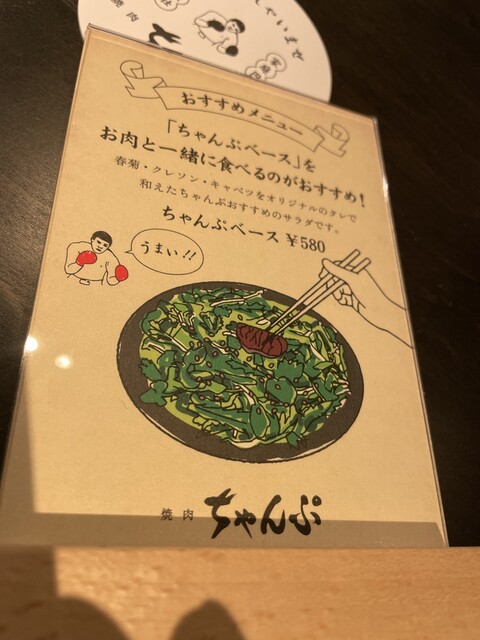 いませ
焼肉
おすすめメニュー
「ちゃんぷベース」を
お肉と一緒に食べるのがおすすめ!
春菊・クレソン・キャベツをオリジナルのタレで
和えたちゃんぷおすすめのサラダです。
ちゃんぷベース ¥580
うまい!!
焼肉 ちゃんぷ